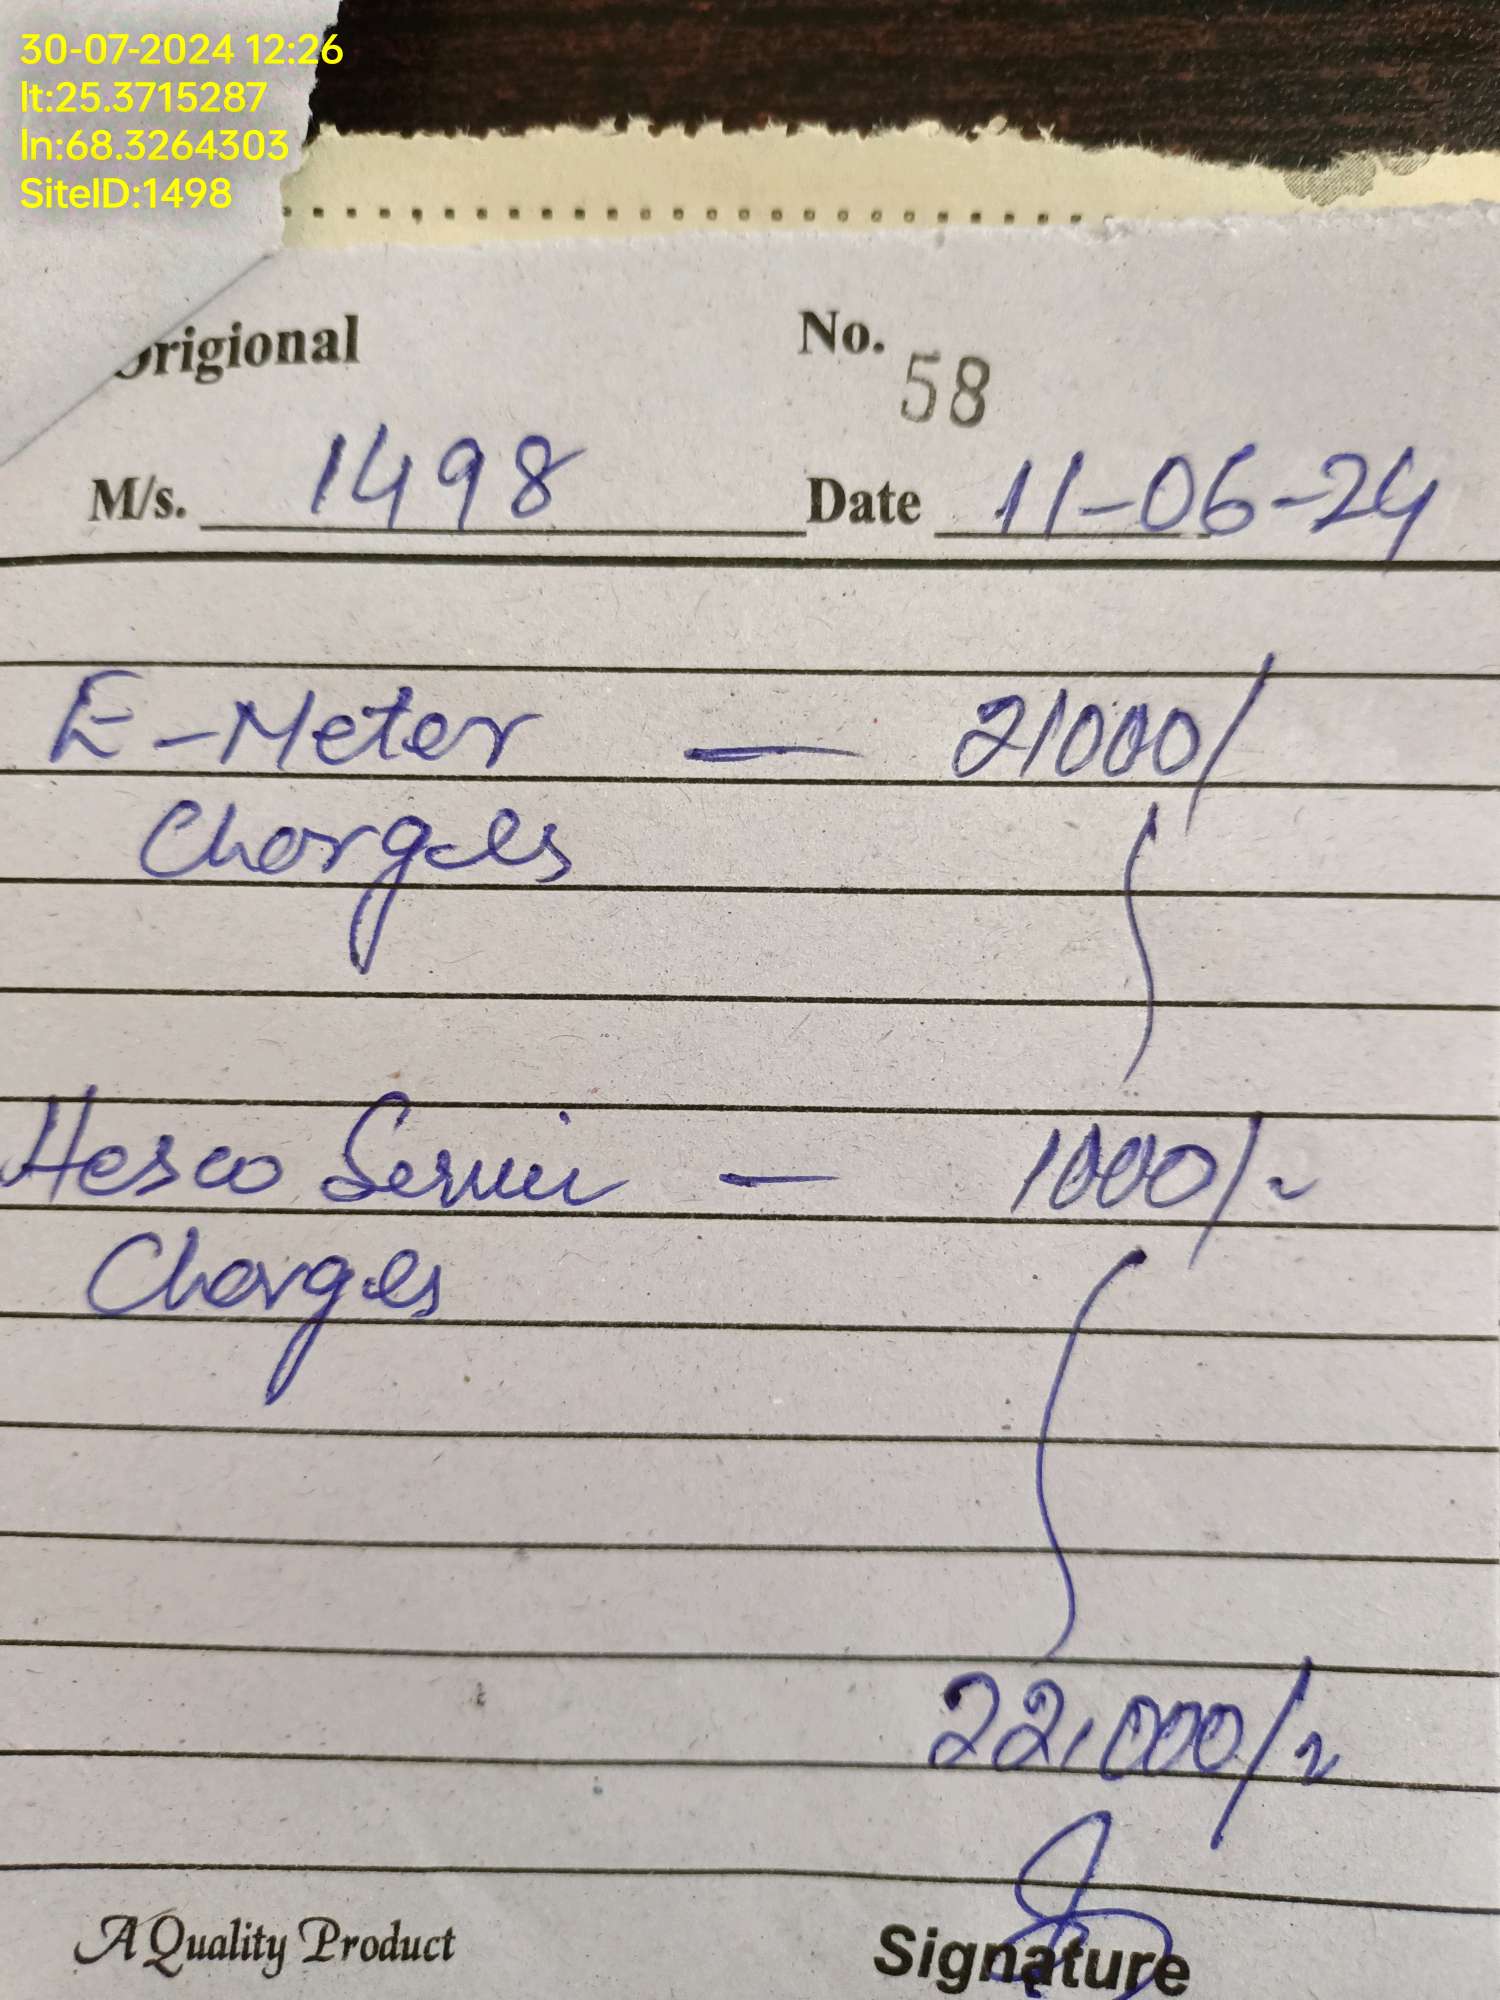 30-07-2024 12:26
lt:25.3715287
ln:68.3264303
SiteID:1498
Origional No. 58
M/s. 1498 Date 11-06-24
E-Meter — 21000/
Charges
Hesco Servic — 1000/-
Charges
22,000/-
A Quality Product Signature